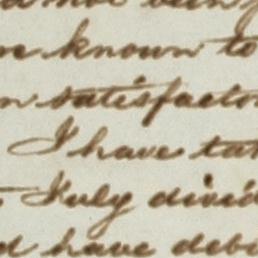 not
known to
satisfacto
I have ta
July divid
have deb